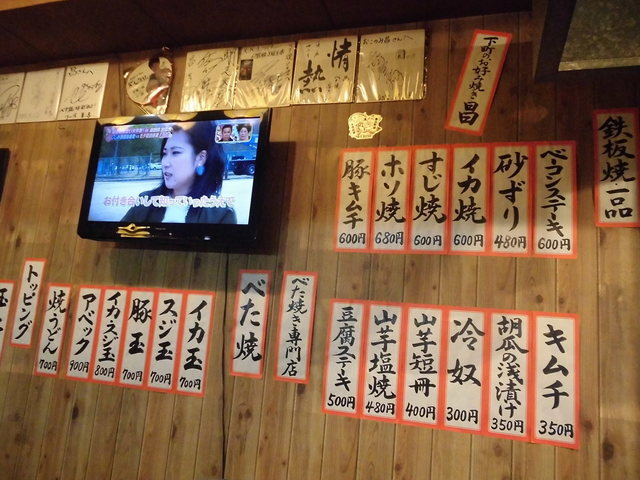 下町のお好み焼き 昌
鉄板焼一品
ベーコンステーキ 600円
砂ずり 480円
イカ焼 600円
すじ焼 600円
ホソ焼 680円
豚キムチ 600円
キムチ 350円
胡瓜の浅漬け 350円
冷奴 300円
山芋短冊 400円
山芋塩焼 480円
豆腐ステーキ 500円
べた焼き専門店
べた焼
イカ玉 700円
スジ玉 700円
豚玉 700円
イカスジ玉 800円
アベック 900円
焼うどん 700円
トッピング
情熱
お付き合いして知っていったうえで